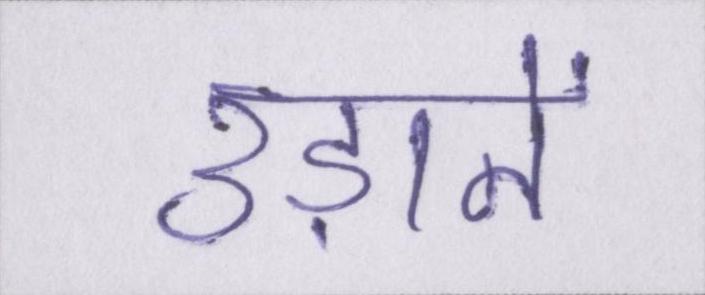 उड़ानें